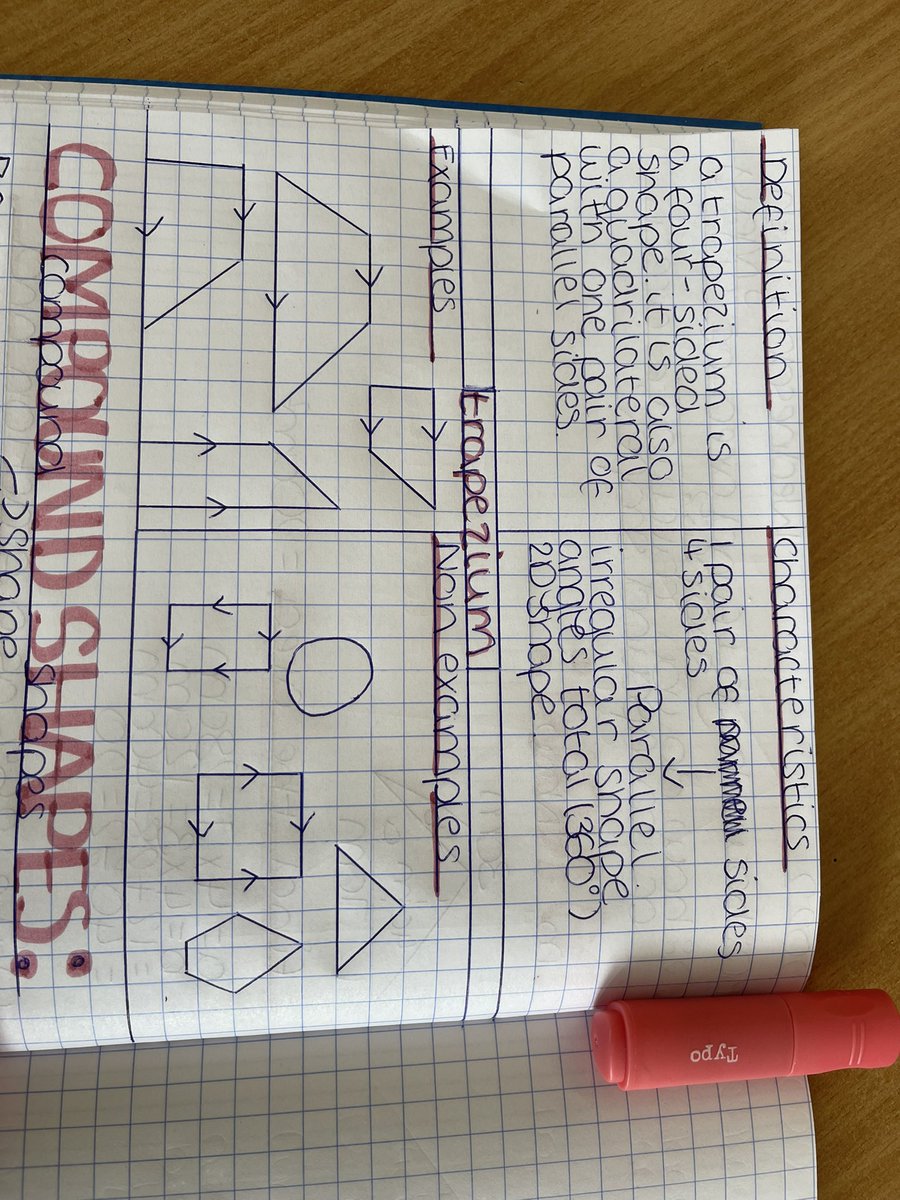 Definition
a trapezium is
a four-sided
shape. it is also
a quadrilateral
with one pair of
parallel sides.
Characteristics
1 pair of sides
4 sides
Parallel.
irregular shape
angles total (360°)
2D shape.
trapezium
Examples
Non examples
COMPOUND SHAPES:
compound shapes
shape
Typo